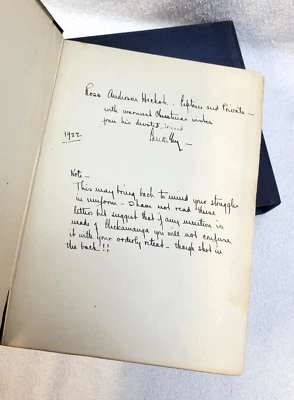 Ross Anderson Hickok. Captain and Private —
with warmest Christmas wishes
from his devoted friend
1922.
Note —
This may bring back to mind your struggles
in uniform — I have not read these
letters but suggest that if any mention is
made of Chickamauga you will not confuse
it with your orderly retreat — though shot in
the back!!!